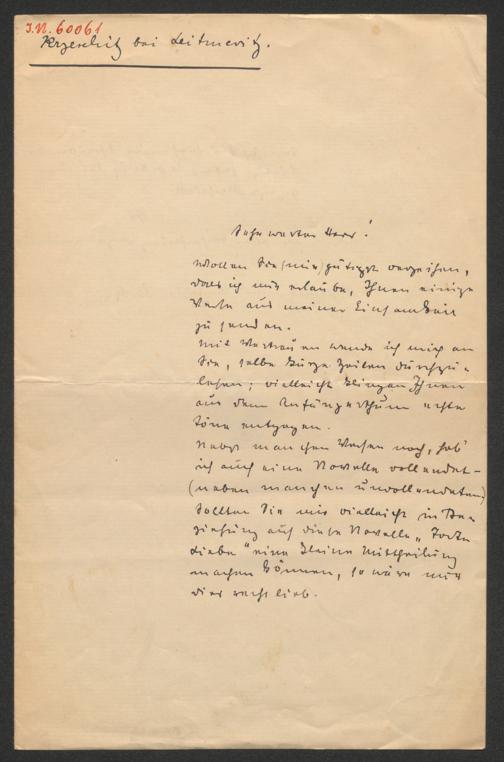 I.N. 60061
Krzeschitz bei Leitmeritz.
Sehr werter Herr!
Wollen Sie (mir) gütigst verzeihen,
dass ich mir erlaube, Ihnen einige
Verse aus meiner Einsamkeit
zu senden.
Mit Vertrauen wende ich mich an
Sie, selbe kurze Zeilen durchzu-
lesen; vielleicht klingen Ihnen
aus dem Anfängerthum echte
Töne entgegen.
Nebst manchen Versen noch, hab'
ich auch eine Novelle vollendet –
(neben manchen unvollendeten)
Sollten Sie mir vielleicht in Be-
ziehung auf diese Novelle „Todte
Liebe" eine kleine Mittheilung
machen können, so wäre mir
dies recht lieb.